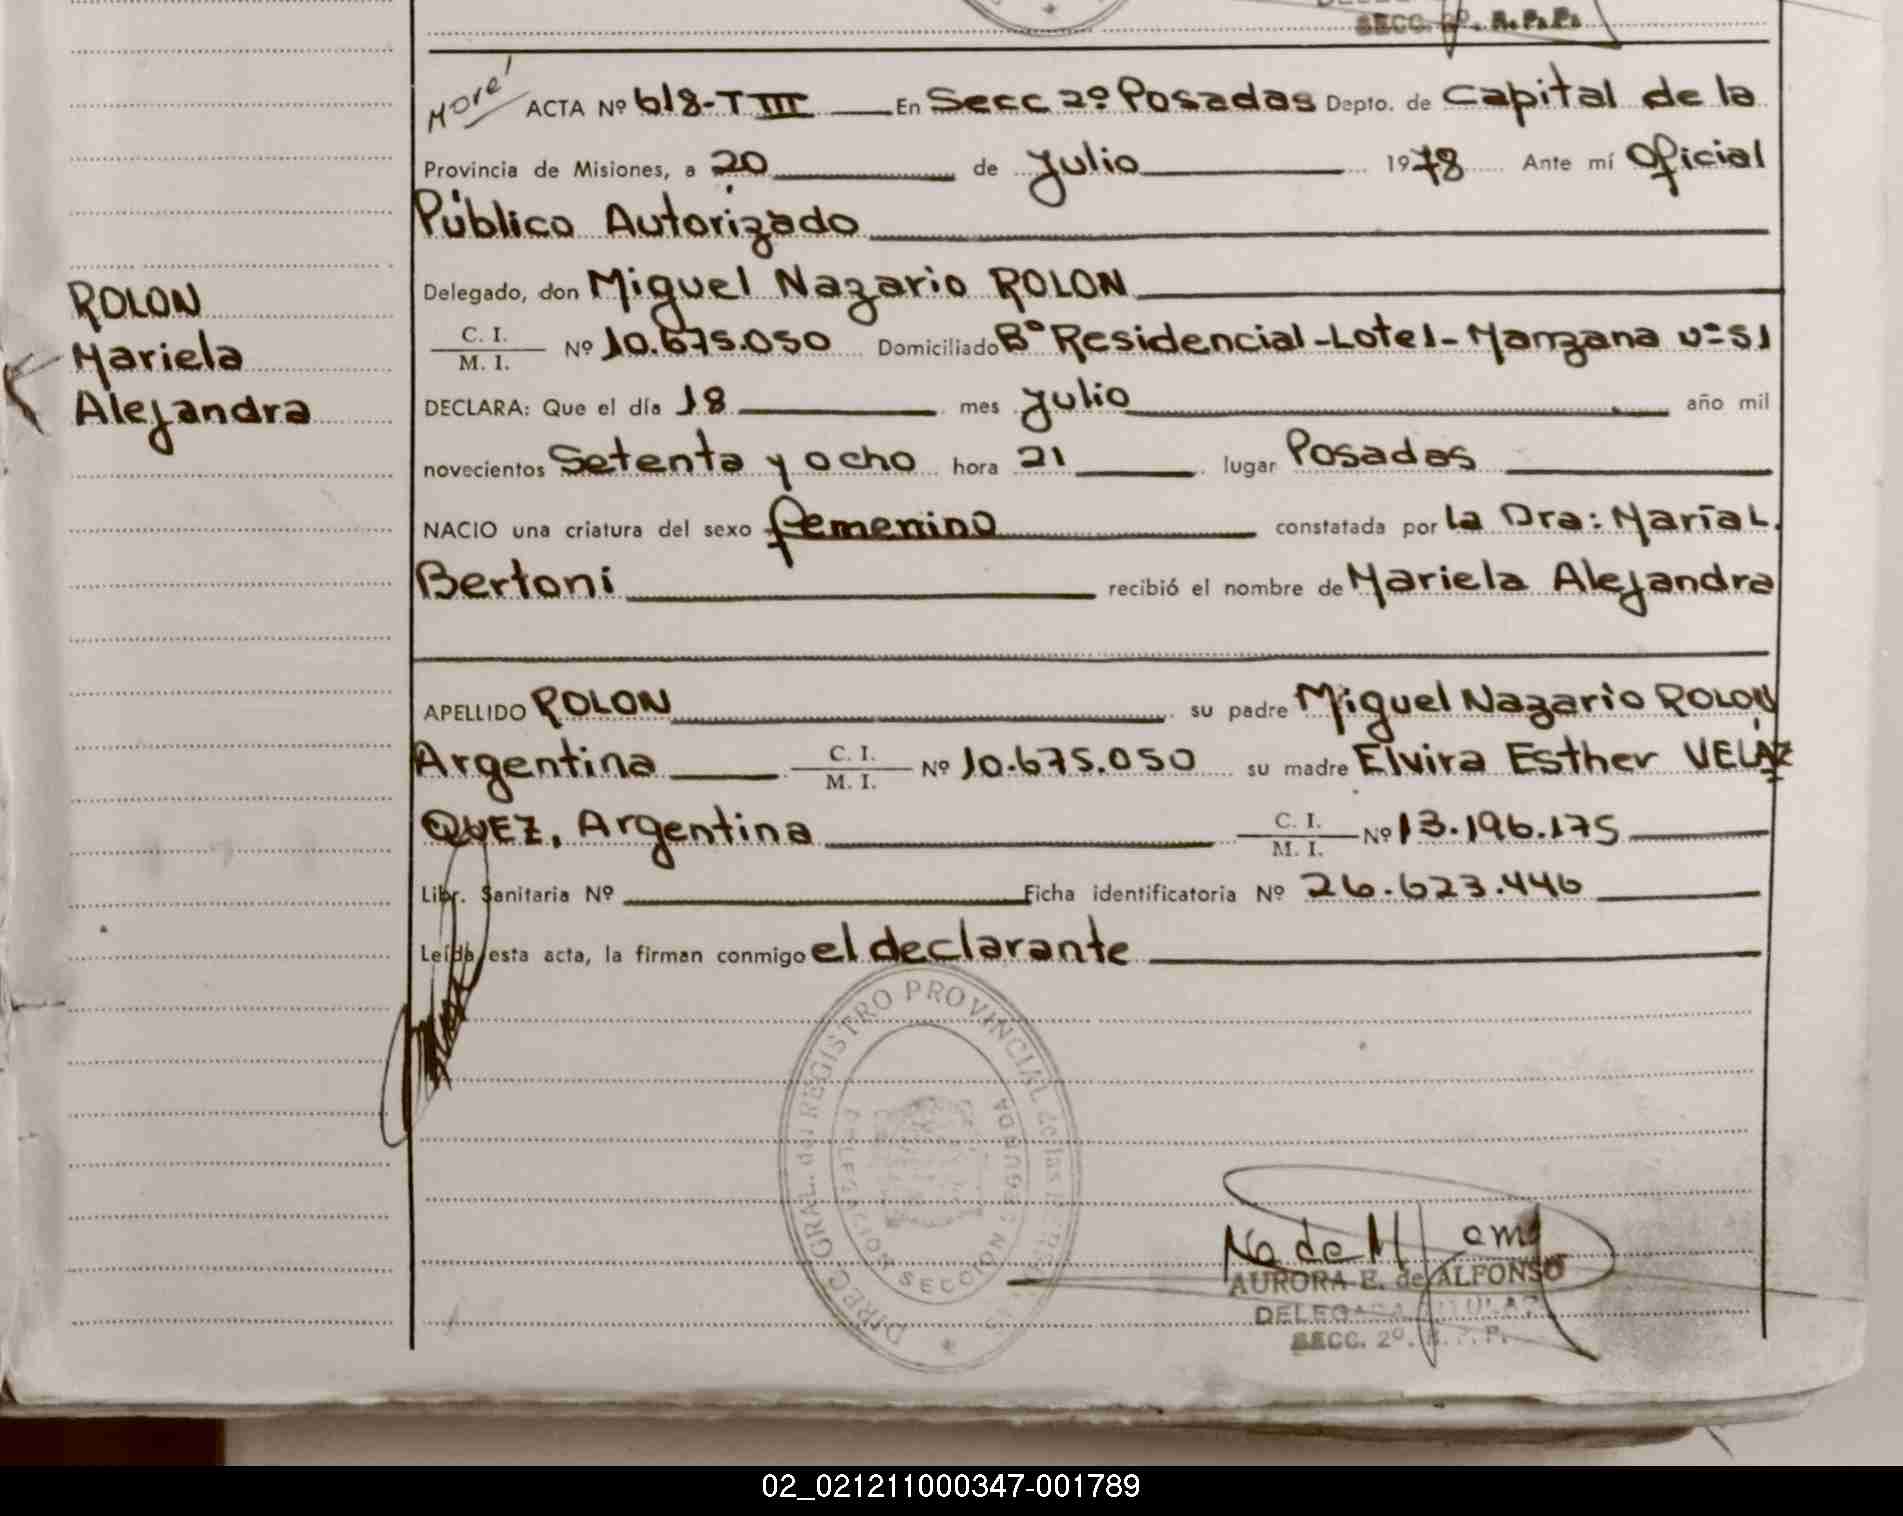 SECC. 2º. R. P. P.
ACTA Nº 618-T III En Secc 2º Posadas Depto. de Capital de la
Provincia de Misiones, a 20 de Julio 1978 Ante mí Oficial
Público Autorizado
Delegado, don Miguel Nazario ROLON
ROLON
C. I.
M. I.
Nº 10.675.050 Domiciliado Bº Residencial-Lote1-Manzana nº 51
Mariela
DECLARA: Que el día 18 mes Julio año mil
Alejandra
novecientos Setenta y ocho hora 21 lugar Posadas
NACIO una criatura del sexo femenino constatada por la Dra: María L.
Bertoni recibió el nombre de Mariela Alejandra
APELLIDO ROLON su padre Miguel Nazario ROLON
Argentina C. I. M. I. Nº 10.675.050 su madre Elvira Esther VELAZ
QUEZ, Argentina C. I. M. I. Nº 13.196.175
Libr. Sanitaria Nº Ficha identificatoria Nº 26.623.446
Leída esta acta, la firman conmigo el declarante
DIREC. GRAL. del REGISTRO PROVINCIAL de las
DELEGACION SECCION SEGUNDA
AURORA E. de ALFONSO
DELEGADA TITULAR
SECC. 2º. R. P. P.
02_021211000347-001789